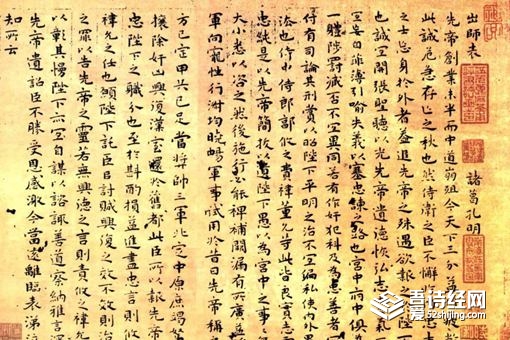 出師表 諸葛孔明
先帝創業未半而中道崩殂今天下三分益州疲敝
此誠危急存亡之秋也然侍衛之臣不懈於內忠志
之士忘身於外蓋追先帝之殊遇欲報之陛下
也誠宜開張聖聽以光先帝遺德恢弘志士之氣
不宜妄自菲薄引喻失義以塞忠諫之路也宮中府中俱
一體陟罰臧否不宜異同若有作奸犯科及為忠善者
付有司論其刑賞以昭陛下平明之治不宜偏私使內外
法也侍中侍郎郭攸之費禕董允等此皆良實志
忠純是以先帝簡拔以遺陛下愚以為宮中之事
大小悉以咨之然後施行必能裨補闕漏有所廣益
軍向寵性行淑均曉暢軍事試用於昔日先帝稱之
方已定甲兵已足當獎帥三軍北定中原庶竭駑
攘除奸凶興復漢室還於舊都此臣所以報先帝
忠陛下之職分也至於斟酌損益進盡忠言則攸
禕允之任也願陛下託臣討賊興復之效不效則治
之罪以告先帝之靈若無興德之言則責攸之禕允
以彰其慢陛下亦宜自謀以諮諏善道察納雅言深
先帝遺詔臣不勝受恩感激今當遠離臨表涕泣
知所云
吾诗经网
52shijing.com